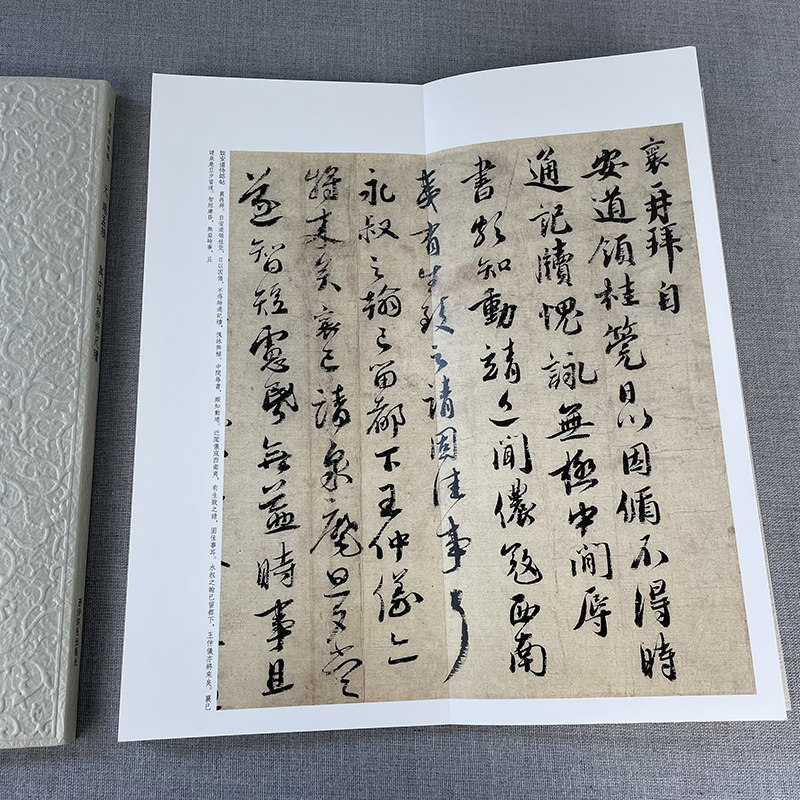 襄再拜自
安道領桂筦日以因循不得時
通記牘愧詠無極中間辱
書頗知動靖近聞儂寇西南
夷有生致之請固佳事耳
永叔之翰已留都下王仲儀亦
將来矣襄已請泉麾旦夕當
遂智短慮昬無益時事且
致安道侍郎帖 襄再拜。自安道領桂筦,日以因循,不得時通記牘,愧詠無極。中間辱書,頗知動靖。近聞儂寇西南夷,有生致之請,固佳事耳。永叔之翰已留都下,王仲儀亦將來矣。襄已
請泉麾旦夕當遂。智短慮昏,無益時事,且